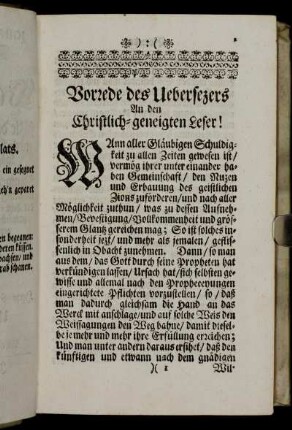 lats.
ein geseegnet
ech'n gepatet
en begegnen:
derste küssen.
wachsen/ und
rab schauen.
*) : ( *
Vorrede des Uebersezers
An den
Christlich-geneigten Leser!
WAnn aller Gläubigen Schuldig-
keit zu allen Zeiten gewesen ist/
vermög ihrer unter einander ha-
ben Gemeinschafft/ den Nuzen
und Erbauung des geistlichen
Zions zufördern/und nach aller
Möglichkeit zuthun/ was zu dessen Aufneh-
men/Bevestigung/Vollkommenheit und größ-
serem Glantz gereichen mag; So ist solches in-
sonderheit jezt/ und mehr als jemalen/ geflis-
senlich in Obacht zunehmen. Dann/ so man
aus dem/ das Gott durch seine Propheten hat
verkündigen lassen/ Ursach hat/sich selbsten ge-
wisse und allemal nach den Propheceyungen
eingerichtete Pflichten vorzustellen/ so/ daß
man dadurch gleichsam die Hand an das
Werck mit anschlage/und auf solche Weis den
Weissagungen den Weg bahne/ damit diesel-
be je mehr und mehr ihre Erfüllung erreichen;
Und man unter andern daraus ersihet/ daß den
künftigen und etwann nach dem gnädigen
)( 1 Wil-